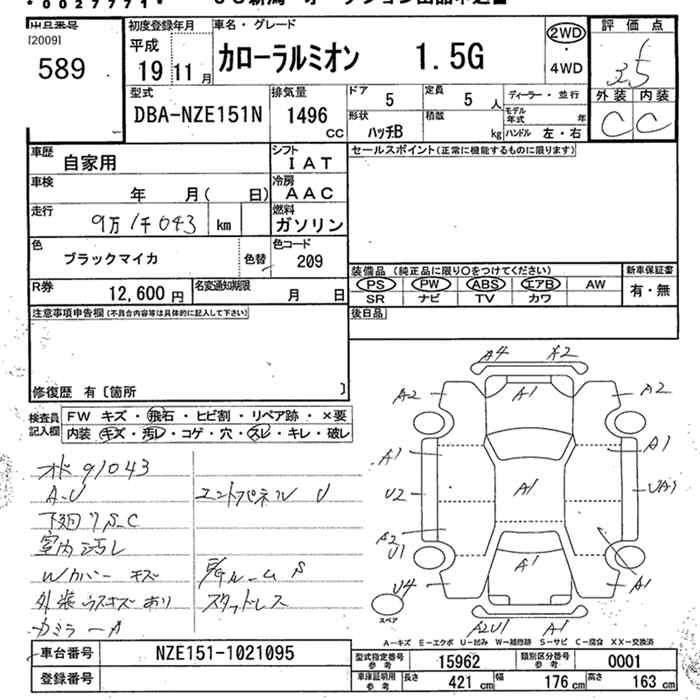 *0027771*
[2009]
589
初度登録年月
平成
19 11 月
車名・グレード
カローラルミオン 1.5G
2WD
・
4WD
評価点
3.5
外装 内装
C C
型式
DBA-NZE151N
排気量
1496
CC
ドア
5
定員
5 人
形状
ハッチB
積載
kg
ディーラー・並行
モデル年式 年
ハンドル 左・右
車歴
自家用
シフト
IAT
車検
年 月( 日)
冷房
AAC
走行
9万1千043 km
燃料
ガソリン
色
ブラックマイカ
色替
色コード
209
R券
12,600 円
名変通知期限
月 日
セールスポイント(正常に機能するものに限ります)
装備品(純正品に限り○をつけてください)
PS PW ABS エアB AW
SR ナビ TV カワ
新車保証書
有・無
後日品
注意事項申告欄(不具合内容等は具体的に記入して下さい)
修復歴 有〔箇所 〕
検査員記入欄
FW キズ・飛石・ヒビ割・リペア跡・×要
内装 キズ・汚レ・コゲ・穴・スレ・キレ・破レ
オド91043
A-U
エンドパネル U
下廻り S-C
室内汚レ
Wカバー キズ
外装ウスキズあり
スタッドレス
A4 X2
A2 A1 A2
A1 A1
U2 A1 UA1
A2
U1
A1
U4 A1
A2U1 A1
スペア
A-キズ E-エクボ U-凹み W-補修跡 S-サビ C-腐食 XX-交換済
車台番号
NZE151-1021095
登録番号
型式指定番号
参考
15962
類別区分番号
参考
0001
車庫証明用
参考
長さ 421 cm
幅 176 cm
高さ 163 cm